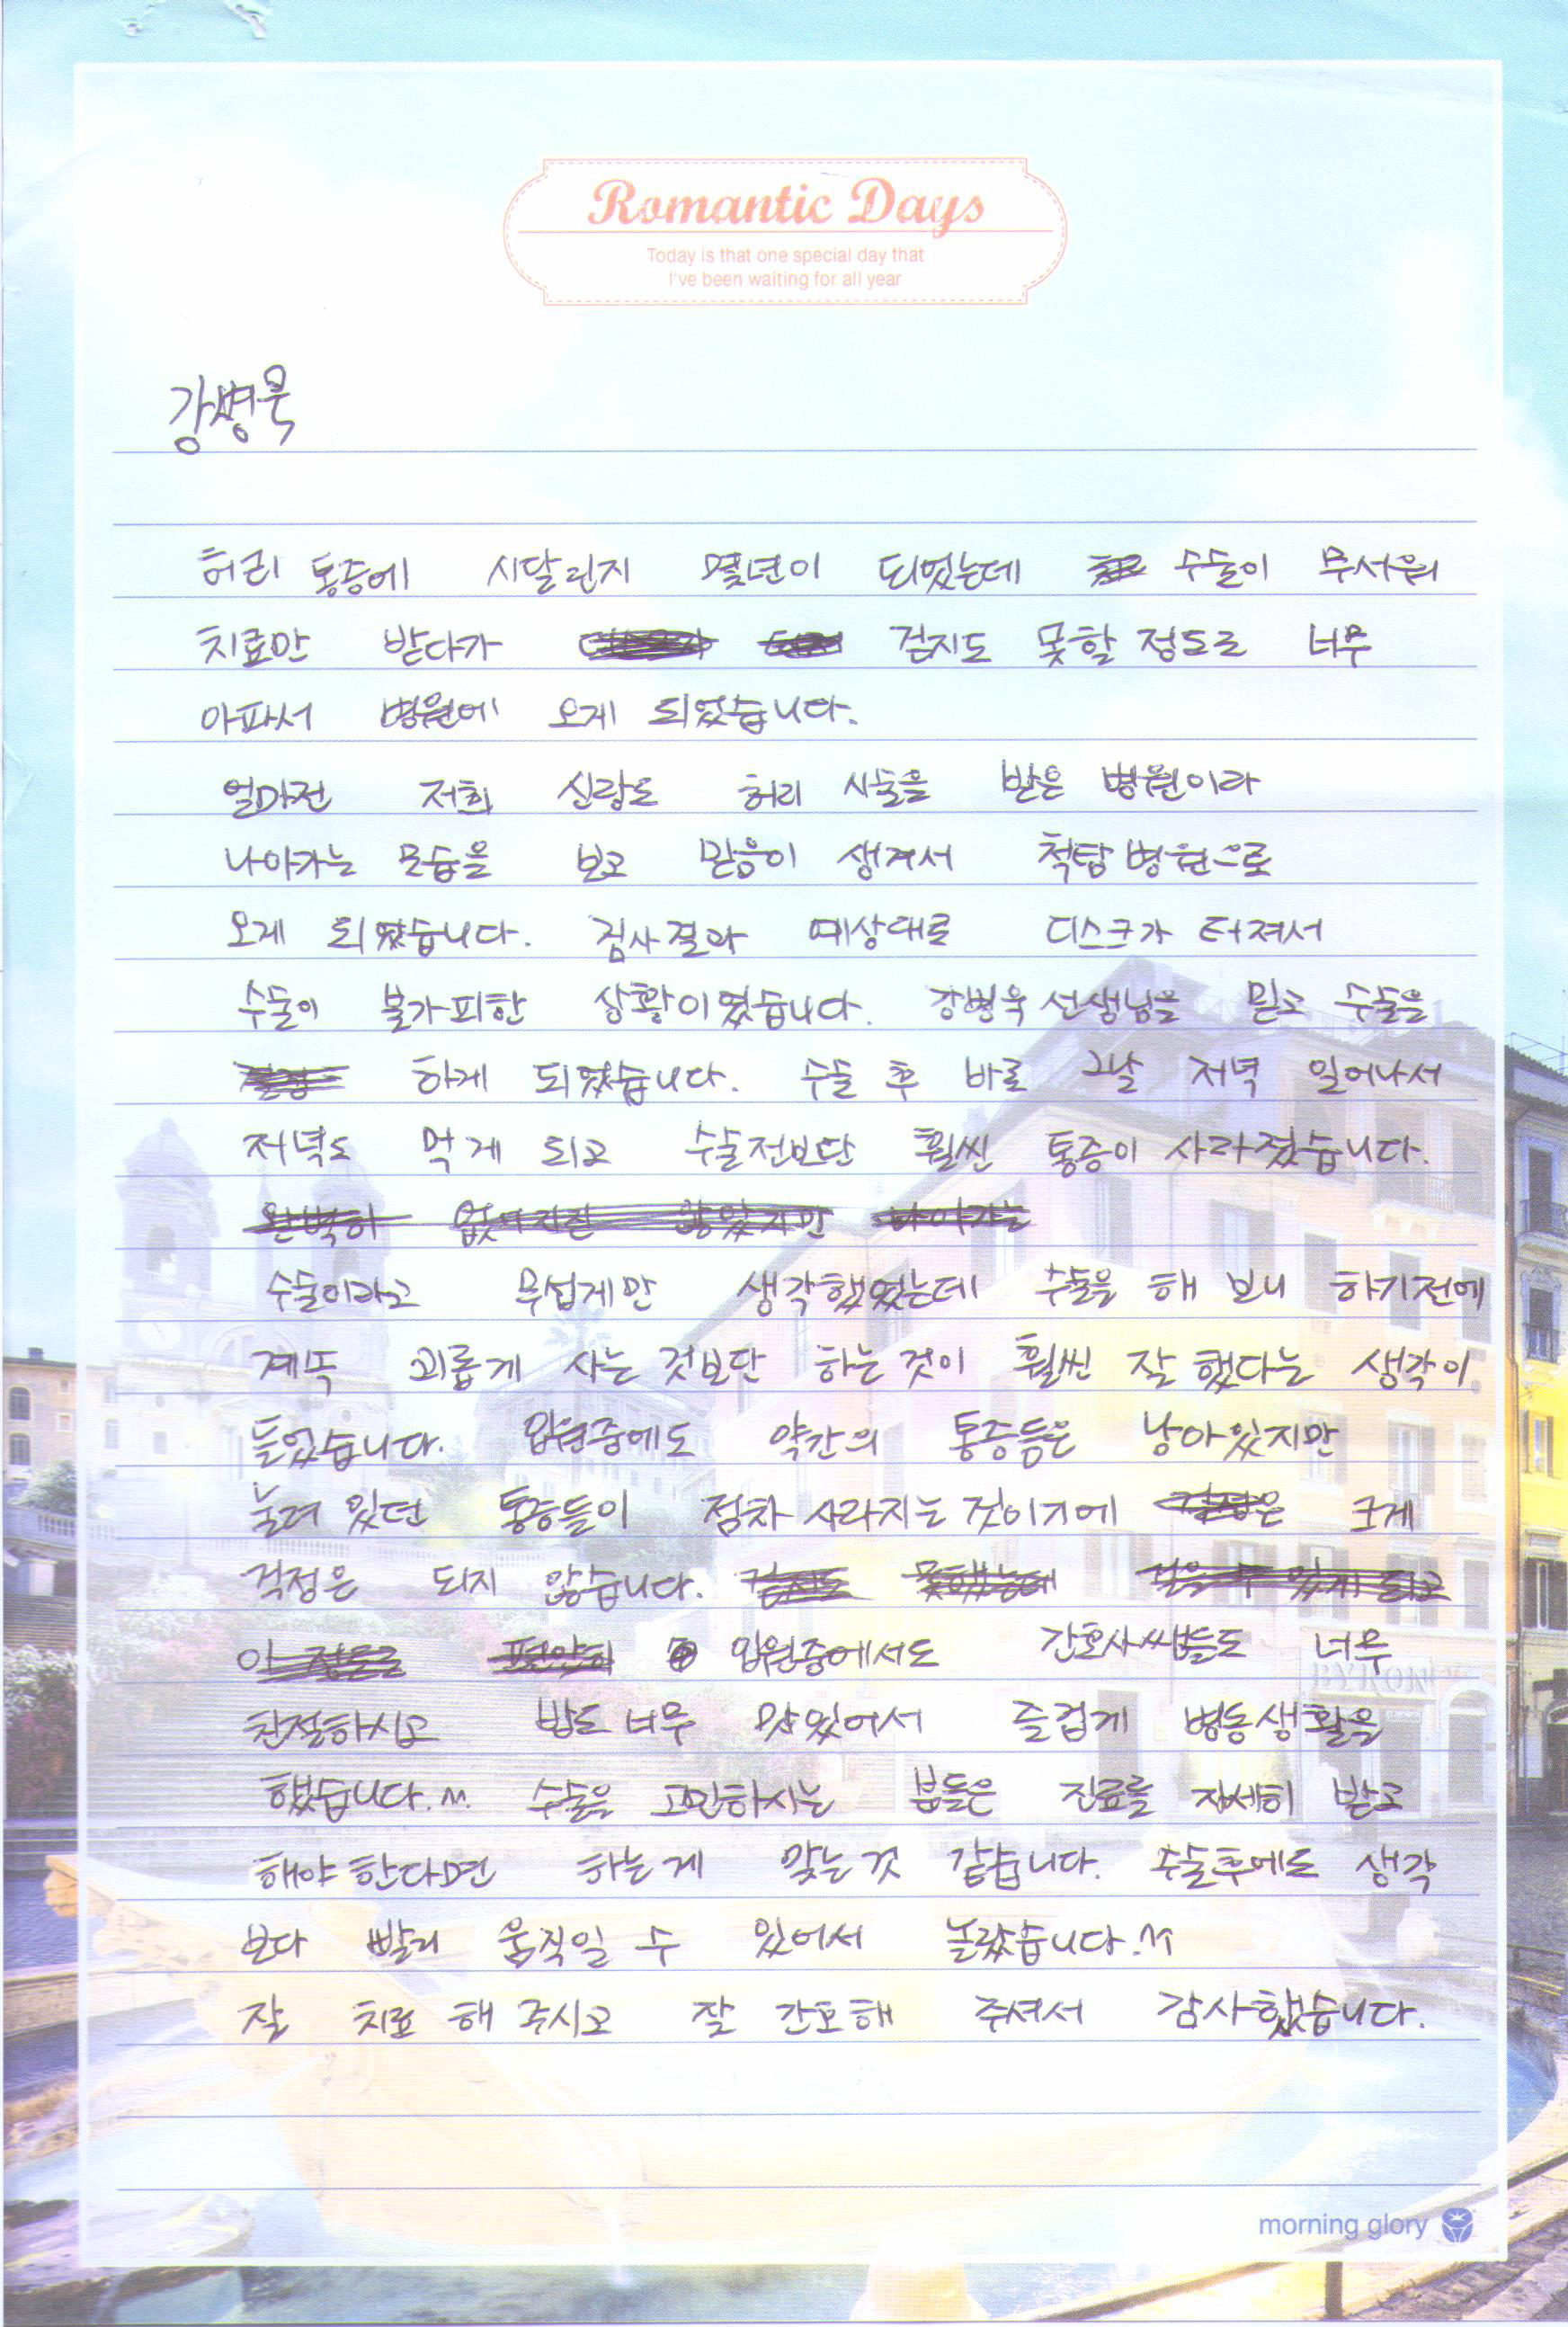 Romantic Days
Today is that one special day that
I've been waiting for all year
강병욱
허리 통증에 시달린지 몇년이 되었는데 수술이 무서워
치료만 받다가 걷지도 못할 정도로 너무
아파서 병원에 오게 되었습니다.
얼마전 저희 신랑도 허리 시술을 받은 병원이라
나아가는 모습을 보고 믿음이 생겨서 척탑병원으로
오게 되었습니다. 검사결과 예상대로 디스크가 터져서
수술이 불가피한 상황이였습니다. 강병욱 선생님을 믿고 수술을
하게 되었습니다. 수술 후 바로 그날 저녁 일어나서
저녁도 먹게 되고 수술전보단 훨씬 통증이 사라졌습니다.
완벽히 없어지진 않았지만 나아가는
수술이라고 무섭게만 생각했었는데 수술을 해 보니 하기전에
계속 괴롭게 사는 것보단 하는 것이 훨씬 잘 했다는 생각이
들었습니다. 입원중에도 약간의 통증들은 남아있지만
눌려 있던 통증들이 점차 사라지는 것이기에 크게
걱정은 되지 않습니다. 걷지도 못했는데 걸을 수 있게 되고
입원중에서도 간호사쌤들도 너무
친절하시고 밥도 너무 맛있어서 즐겁게 병동생활을
했습니다.^^. 수술을 고민하시는 분들은 진료를 자세히 받고
해야 한다면 하는게 맞는것 같습니다. 수술후에도 생각
보다 빨리 움직일 수 있어서 놀랐습니다.^^
잘 치료 해 주시고 잘 간호해 주셔서 감사했습니다.
morning glory